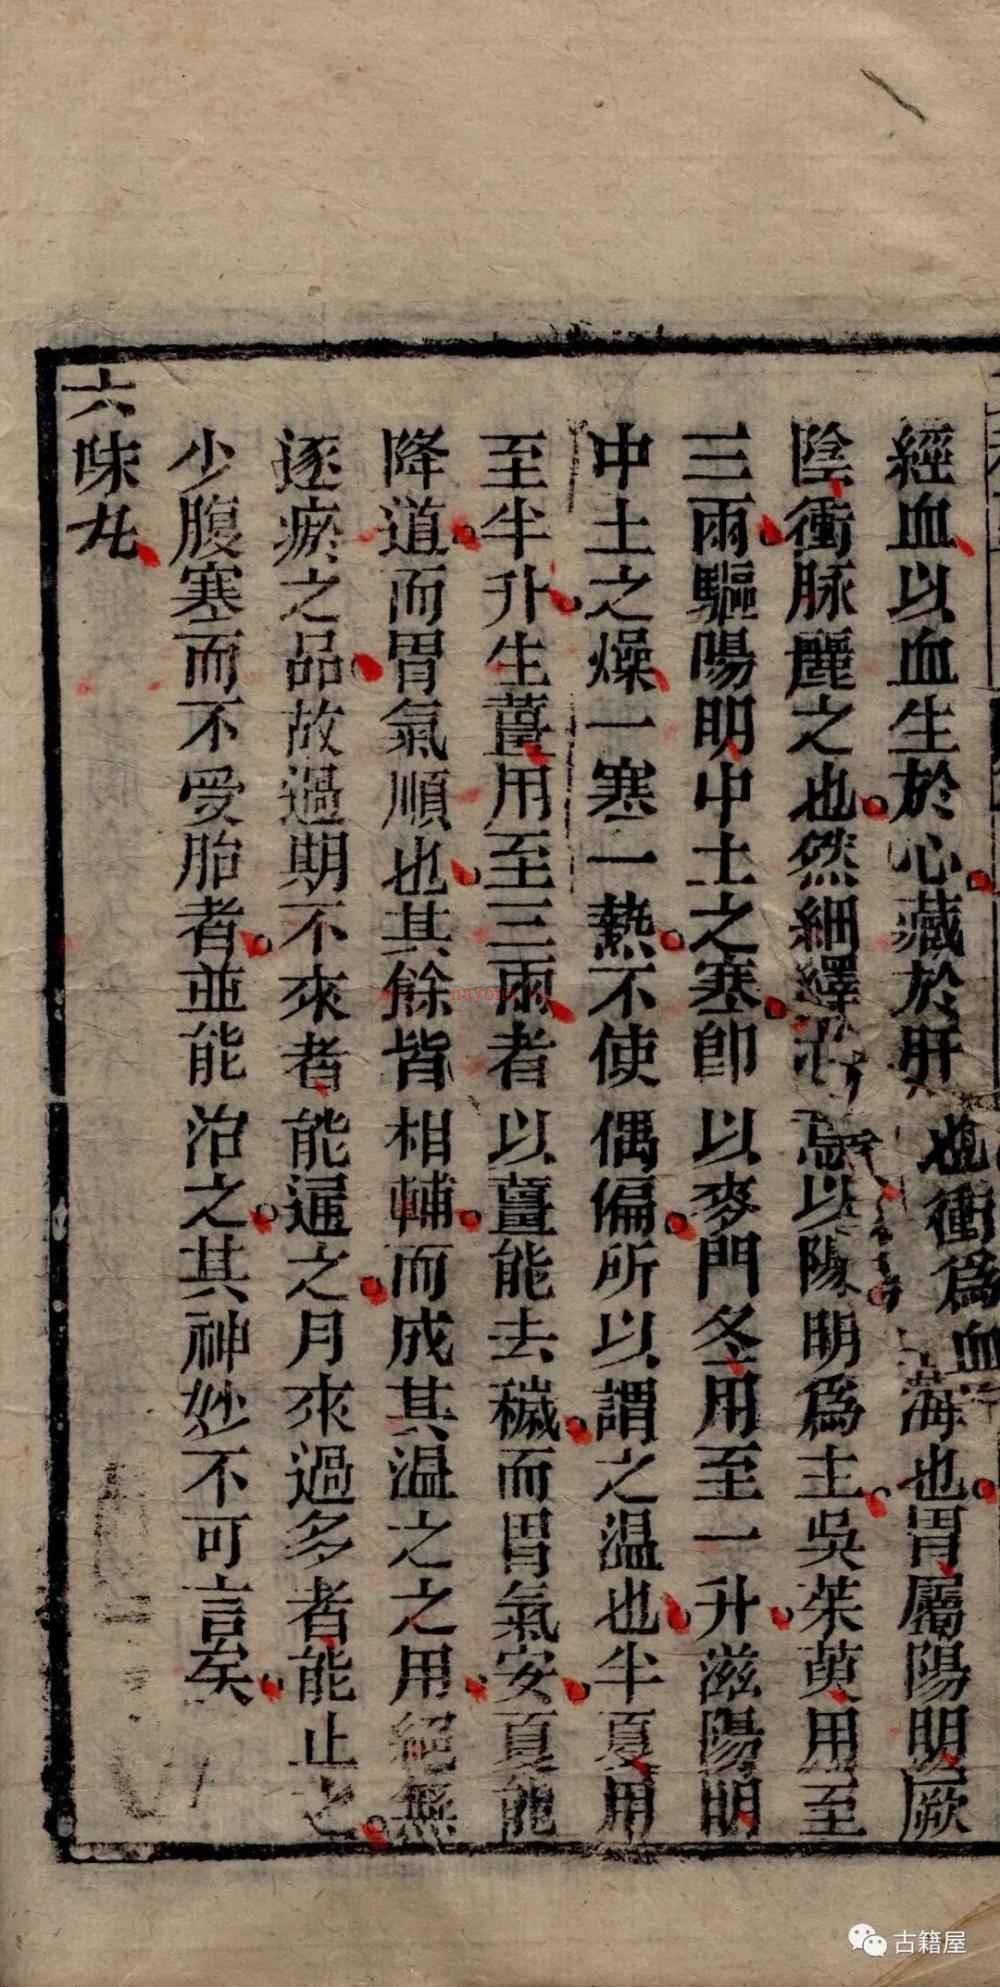 經血以血生於心藏於肝也衝爲血海也胃屬陽明厥
陰衝脉麗之也然細繹以陽明爲主吳茱萸用至
三兩驅陽明中土之寒卽以麥門冬用至一升滋陽明
中土之燥一寒一熱不使偶偏所以謂之温也半夏用
至半升生薑用至三兩者以薑能去穢而胃氣安夏能
降道而胃氣順也其餘皆相輔而成其温之之用絕無
逐瘀之品故過期不來者能通之月來過多者能止之
少腹寒而不受胎者並能治之其神妙不可言矣
六味丸
古籍屋